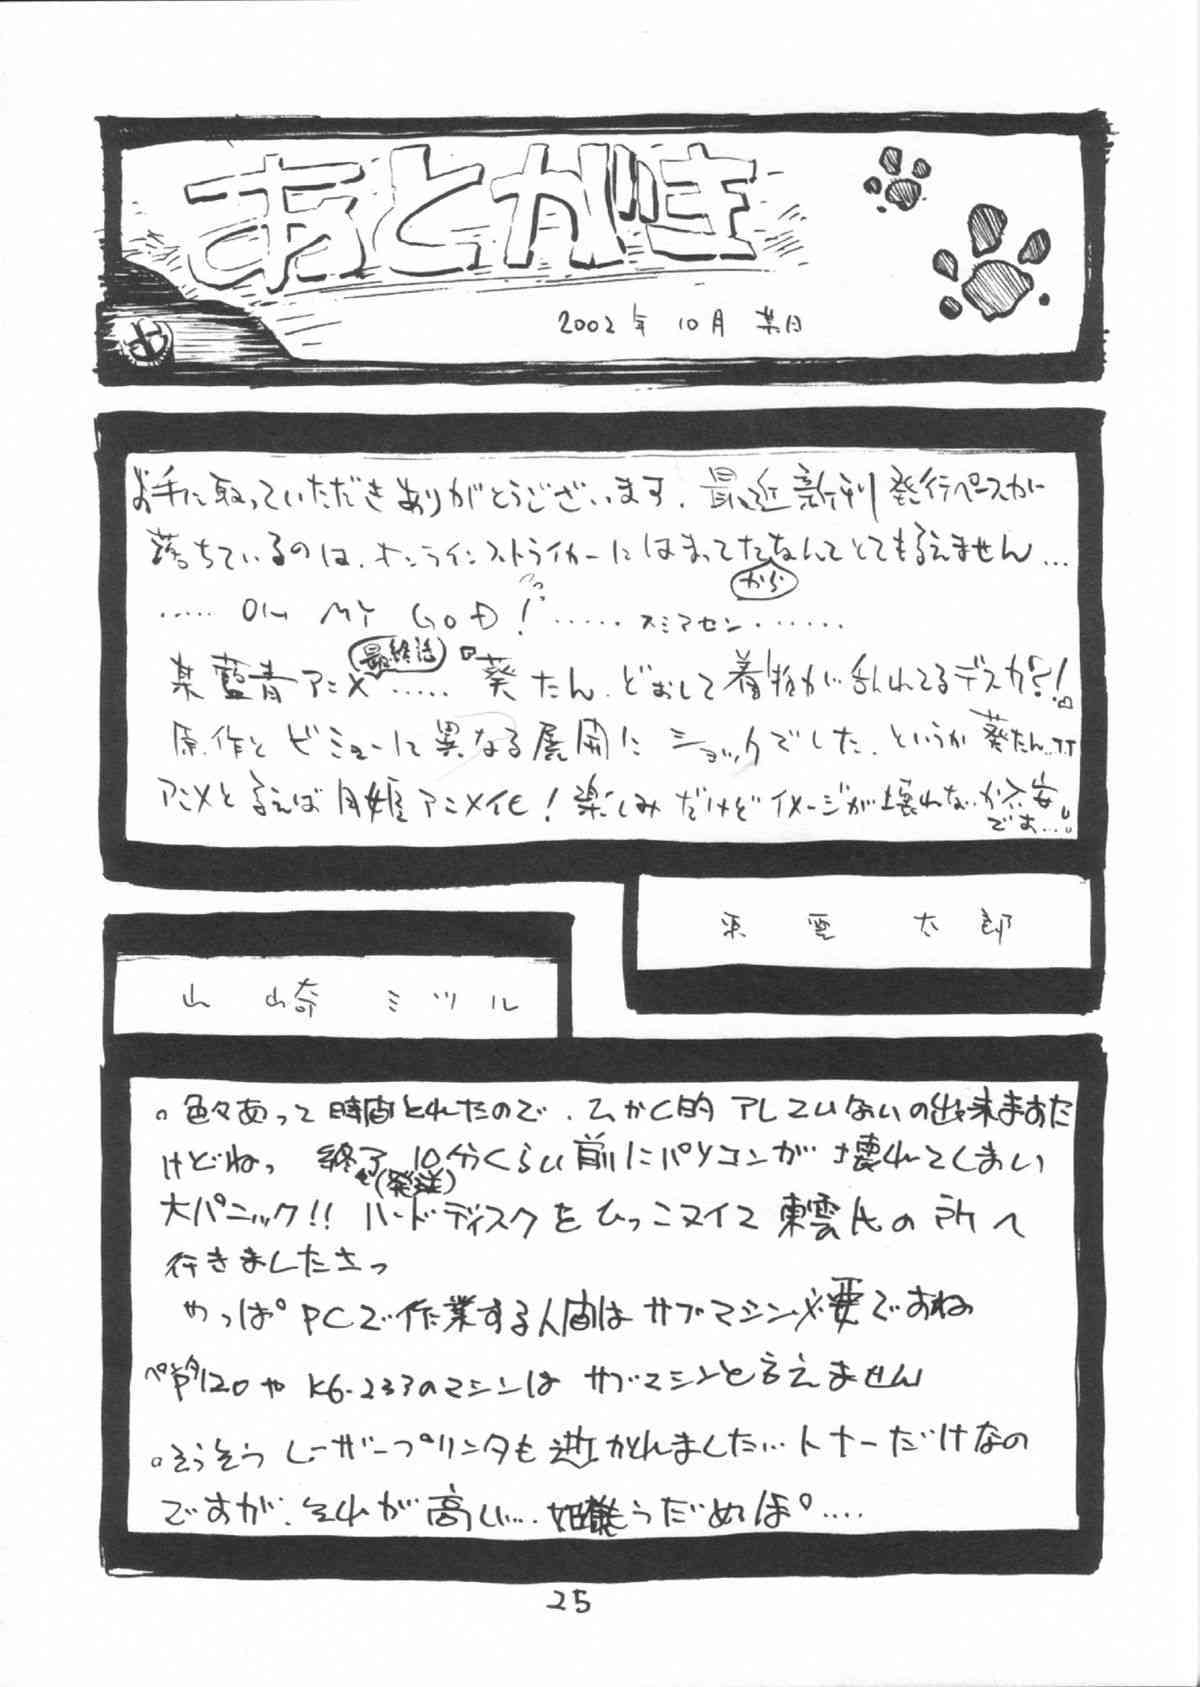 あとがき
2002年 10月 某日
お手に取っていただきありがとうございます。最近新刊発行ペースが
落ちているのは、オンラインストライカーにはまってたなんてとても言えません…
から
…… OH MY GOD! …… スミマセン ……
某藍青アニメ最終話……葵たん、どおして着物が乱れてるデスカ!!
原作とビミョーに異なる展開にショックでした、というか葵たん…
アニメと言えば月姫アニメ化!楽しみだけどイメージが壊れないか不安
です…!!
東雲 太郎
山崎 ミツル
○色々あって時間とれたので、
けどねっ 終了10分くらい前にパソコンが壊れてしまい
(発送)
大パニック!! ハードディスクをひっこヌイて東雲氏の所へ
行きましたさっ
やっぱPCで作業する人間はサブマシン必要ですね
ペンタ120やK6-233のマシンはサブマシンと言えません
○そうそうレーザープリンタも逝かれました… トナーだけなの
ですが、それが高い…
25